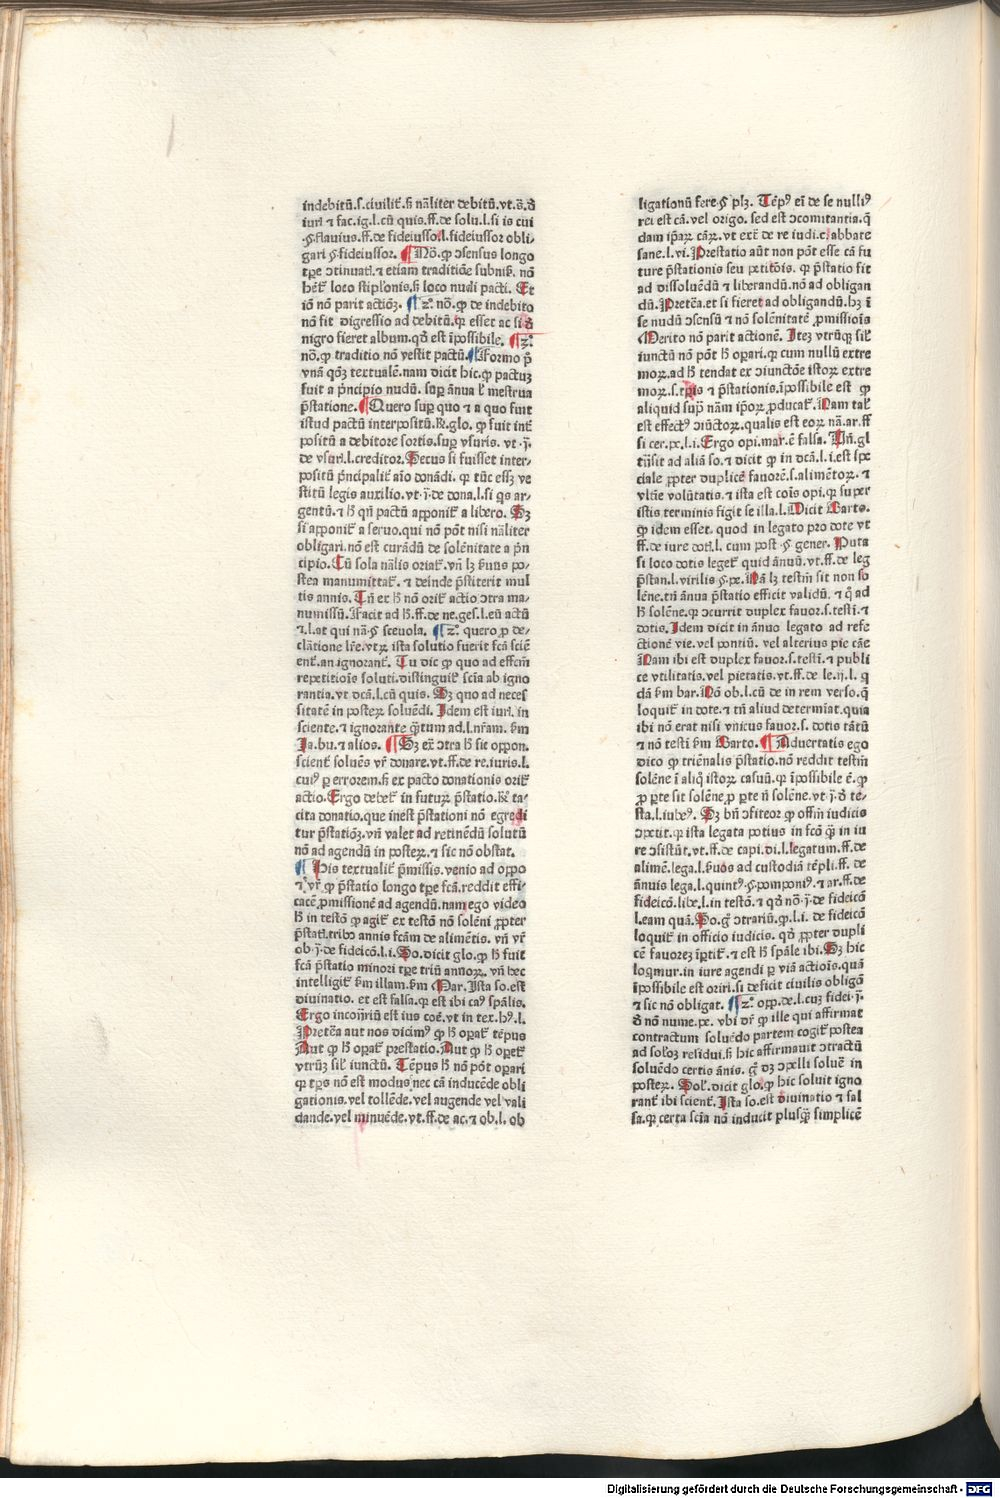 indebitū.s.ciuilit̄.ꝭ nāliter debitū.vt.ꝭ.
iuri ⁊ fac.ig.l.cū quis.ff.de solu.l.si is cui
.§.flauius.ff.de fideiussor.l.fideiussor obli⸗
gari §.fideiussor. ¶ Nō.ꝙ ↄsensus longo
tꝑe ↄtinuati.⁊ etiam traditiōe nō
loco nudi pacti. Et
iō nō parit actiōꝫ. ¶ zº. nō.ꝙ de indebito
nō fit digressio ad debitū.ꝗꝛ esset ac si
nigro fieret album.qđ est īpossibile. ¶ zº.
nō.ꝙ traditio nō vestit pactū. ¶ Formo
vnā qōꝫ textualē.nam dicit hic.ꝙ pactuꝫ
fuit a p̄ncipio nudū. suꝑ ānua menstrua
p̄statione. ¶ Quero suꝑ quo ⁊ a quo fuit
istud pactū interpositū.R̄.glo. ꝙ fuit int̄
positū a debitore sortis.suꝑ vsuris. vt.j̄.
de vsur.l.creditor.Secus si fuisset inter⸗
positū p̄ncipalit̄ aīo donādi. ꝗꝛ tūc essꝫ ve
stitū legis auxilio.vt.j̄.de dona.l.si qs ar⸗
gentū.⁊ ꝭ qn̄ pactū apponit̄ a libero. Sꝫ
si apponit̄ a seruo.qui nō pōt nisi nāliter
obligari.nō est curādū de solēnitate a p̄n
cipio. Cū sola nālis oriat̄. vn̄ lꝫ po⸗
stea manumittat̄. ⁊ deinde p̄stiterit mul
tis annis. Tn̄ ex ꝭ nō orit̄ actio ↄtra ma⸗
numissū. Facit ad ꝭ.ff.de ne.ges.l.eū actū
⁊.l.at qui nā.§ sceuola. ¶ zº. quero ꝓ de⸗
clatione lr̄e.vtꝝ ista solutio fuerit fcā sciē
ent̄.an ignorant̄. Tu dic ꝙ quo ad effcm̄
repetitiōis soluti.distinguit̄ scīa ab igno
rantia.vt dcā.l.cū quis. Sꝫ quo ad neces
sitatē in posteꝝ soluēdi. Idem est iuri. in
sciente.⁊ ignorante
Ja.bu.⁊ alios. ¶ Sꝫ ex̄ ↄtra ꝭ sic oppon.
scient̄ soluēs vr̄ donare.vt.ff.de re.iuris.l.
cuiꝰ ꝑ errorem.ꝭ ex pacto donationis orit̄
actio.Ergo debet̄ in futuꝝ p̄statio. ta⸗
cita donatio.que inest p̄stationi nō egredi
tur p̄statiōꝫ.vn̄ valet ad retinēdū solutū
nō ad agendū in posteꝝ.⁊ sic nō obstat.
¶ His textualit̄ p̄missis.venio ad oppo
⁊ vr̄.ꝙ p̄statio longo tꝑe fcā.reddit effi⸗
cacē ꝓmissionē ad agendū.nam ego video
ꝭ in testō ꝙ agit̄ ex testō nō solēni ꝓpter
p̄stati.tribꝰ annis fcām de alimētis. vn̄ vr̄
ob.j̄.de fideicō.l.i. So.dicit glo.ꝙ ꝭ fuit
fcā p̄statio minori tꝑe triū annoꝝ. vn̄ hec
intelligit̄ illam. Par.Ista so.est
diuinatio. et est falsa.ꝗꝛ est ibi caꝰ spālis.
Ergo est ius coē.vt in tex.hꝰ.l.
Pretēa aut nos dicimꝰ ꝙ ꝭ oꝑat̄ tēpus
Aut ꝙ ꝭ oꝑat̄ prestatio. Aut ꝙ ꝭ oꝑet̄
vtrūꝫ sil̄ iunctū. Tēpus ꝭ nō pōt oꝑari
ꝗꝛ tꝑs nō est modus nec cā inducēde obli
gationis.vel tollēde.vel augende vel vali
dande.vel minuēde.vt.ff.de ac.⁊ ob.l. ob
ligationū fere.§ plꝫ. Tēpꝰ eī de se nulliꝰ
rei est cā.vel origo. sed est ↄcomitantia.q̄
dam ip̄aꝝ cāꝝ.vt ext̄ de re iudi.c.abbate
sane.l.vi. Prestatio aūt non pōt esse cā fu
ture p̄stationis seu petitōis. ꝗꝛ p̄statio fit
ad dissoluēdū ⁊ liberandū.nō ad obligan
dū. Pretēa.et si fieret ad obligandū.hꝫ ī
se nudū ↄsensū ⁊ nō solēnitatē ꝓmissiōis
Merito nō parit actionē. Iteꝫ vtrūqꝫ sil̄
iunctū nō pōt ꝭ oꝑari.ꝗꝛ cum nullū extre
moꝝ.ad ꝭ tendat ex ↄiunctōe istoꝝ extre
moꝝ.s.tꝑis ⁊ p̄stationis.īpossibile est ꝙ
aliquid nām ip̄oꝝ ꝓducat̄. Nam tal̄
est effectꝰ ↄiūctoꝝ.qualis est eoꝝ nā.ar.ff
si cer.pe.l.i. Ergo opi.mar.ē falsa. gl
ad aliā so.⁊ dicit ꝙ in dcā.l.i.est spe
ciale ꝓpter duplicē fauorē.s.alimētoꝝ. ⁊
vltīe volūtatis.⁊ ista est coīs opi.ꝗꝛ super
istis terminis figit se illa.l. Dicit Barto.
ꝙ idem esset. quod in legato pro dote vt
ff.de iure doti.l. cum post.§ gener. Puta
si loco dotis leget̄ quid ānuū.vt.ff.de leg
p̄stan.l.virilis §.pe. Nā lꝫ testm̄ sit non so
lēne.tn̄ ānua p̄statio efficit validū. ⁊ ad
ꝭ solēne.ꝗꝛ ↄcurrit duplex fauor.s.testi.⁊
dotis. Idem dicit in ānuo legato ad refe
ctionē vie.vel pontiū. vel alterius pie cāe
Nam ibi est duplex fauor.s.testi.⁊ publi
ce vtilitatis.vel pietatis.vt.ff.de le.ij.l. q
dā bar. Nō ob.l.cū de in rem verso.ꝗꝛ
loquit̄ in dote.⁊ tn̄ aliud determiat.quia
ibi nō erat nisi vnicus fauor.s. dotis tātū
⁊ nō testi Barto. ¶ Aduertatis ego
dico ꝙ triēnalis p̄statio.nō reddit testm̄
solēne ī aliq̄ istoꝝ casuū.ꝗꝛ īpossibile ē.ꝙ
ꝓ ꝑte sit solēne ꝓ ꝑte n̄ solēne.vt.j̄. te⸗
sta.l.iubeꝰ. Sꝫ bn̄ ↄfiteor ꝙ offm̄ iudicis
ↄpetit.ꝗꝛ ista legata potius in fcō in iu
re ↄsistūt.vt.ff.de capi.di.l.legatum.ff.de
alimē.lega.l.seruos ad custodiā tēpli.ff. de
ānuis lega.l.quintꝰ.§.pomponiꝰ.⁊ ar.ff.de
fideicō.libe.l.in testō.⁊ nō.j̄.de fideicō
l.eam quā. Po.gͦ ↄtrariū.ꝙ.l.i. de fideicō
loquit̄ in officio iudicis. qđ ꝓpter dupli
cē fauoreꝫ īpertit̄.⁊ est ꝭ spāle ibi. Sꝫ hic
loqmur.in iure agendi ꝑ viā actiōis.quā
īpossibile est oriri.si deficit ciuilis obligō
⁊ sic nō obligat. ¶ zº. opp.de.l.cuꝫ fidei.j̄.
nō nume.pe. vbi dr̄ ꝙ ille qui affirmat
contractum soluēdo partem cogit̄ postea
ad residui.ꝭ hic affirmauit ↄtractū
soluēdo certis ānis. gͦ dꝫ ↄpelli soluē in
posteꝝ. Sol.dicit glo.ꝙ hic soluit igno
rant̄ ibi scient̄. Ista so.est diuinatio ⁊ fal
sa.ꝗꝛ certa scīa nō inducit plusꝙ̄ simplicē
Digitalisierung gefördert durch die Deutsche Forschungsgemeinschaft - DFG